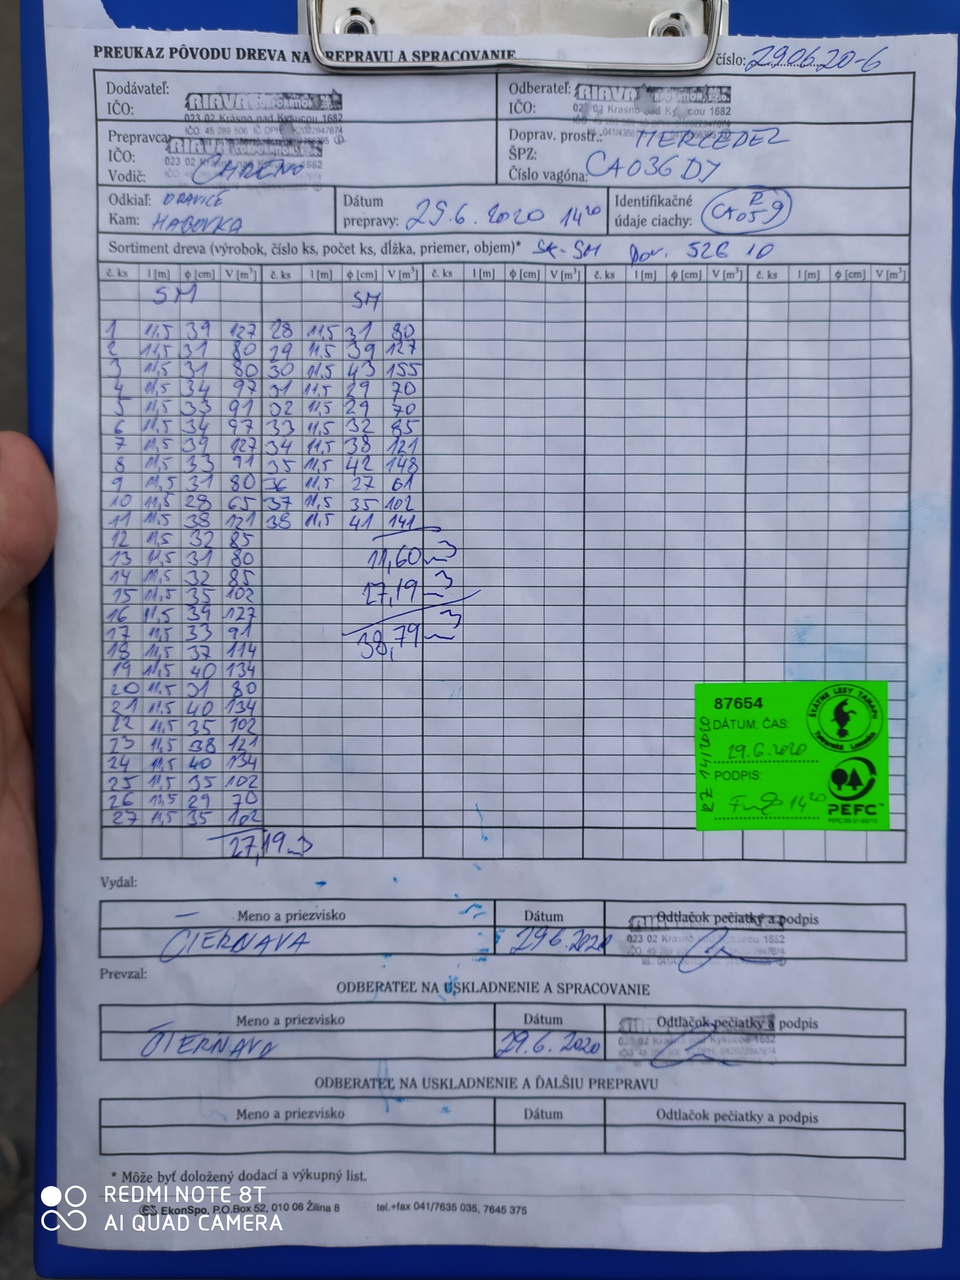 PREUKAZ PÔVODU DREVA NA PREPRAVU A SPRACOVANIE
číslo: 29.06.20-6
Dodávateľ:
IČO:
RIAVA CORPORATION
023 02 Krásno nad Kysucou 1682
IČO 45 289 506
Odberateľ:
IČO:
RIAVA
Krásno nad Kysucou 1682
Prepravca:
IČO:
Vodič:
RIAVA CORPORATION
Doprav. prostr.: MERCEDEZ
ŠPZ: CA036DJ
Číslo vagóna:
Odkiaľ: ORAVICE
Kam: HABOVKA
Dátum prepravy: 29.6.2020 14 20
Identifikačné údaje ciachy: R CA059
Sortiment dreva (výrobok, číslo ks, počet ks, dĺžka, priemer, objem)* SK-SM Dov. 526 10
č. ks l [m] ϕ [cm] V [m³] č. ks l [m] ϕ [cm] V [m³] č. ks l [m] ϕ [cm] V [m³] č. ks l [m] ϕ [cm] V [m³] č. ks l [m] ϕ [cm] V [m³]
SM SM
1 11,5 39 127 28 11,5 31 80
2 11,5 31 80 29 11,5 39 127
3 11,5 31 80 30 11,5 43 155
4 11,5 34 97 31 11,5 29 70
5 11,5 33 91 32 11,5 29 70
6 11,5 34 97 33 11,5 32 85
7 11,5 39 127 34 11,5 38 121
8 11,5 33 91 35 11,5 42 148
9 11,5 31 80 36 11,5 27 61
10 11,5 28 65 37 11,5 35 102
11 11,5 38 121 38 11,5 41 141
12 11,5 32 85
13 11,5 31 80 11,60 m3
14 11,5 32 85
15 11,5 35 102 27,19 m3
16 11,5 39 127
17 11,5 33 91 38,79 m3
18 11,5 37 114
19 11,5 40 134
20 11,5 31 80
21 11,5 40 134
22 11,5 35 102
23 11,5 38 121
24 11,5 40 134
25 11,5 35 102
26 11,5 29 70
27 11,5 35 102
27,19 m3
87654
ŠTÁTNE LESY TANAPU
Tatranská Lomnica
DÁTUM; ČAS:
29.6.2020
PODPIS:
14 20
PEFC
Vydal:
Meno a priezvisko Dátum Odtlačok pečiatky a podpis
ČIERNAVA 29.6.2020
023 02 Krásno nad Kysucou 1682
Prevzal:
ODBERATEĽ NA USKLADNENIE A SPRACOVANIE
Meno a priezvisko Dátum Odtlačok pečiatky a podpis
ČIERNAVA 29.6.2020
ODBERATEĽ NA USKLADNENIE A ĎALŠIU PREPRAVU
Meno a priezvisko Dátum Odtlačok pečiatky a podpis
* Môže byť doložený dodací a výkupný list.
EkonSpo, P.O.Box 52, 010 06 Žilina 8 tel.+fax 041/7635 035, 7645 375
REDMI NOTE 8T
AI QUAD CAMERA